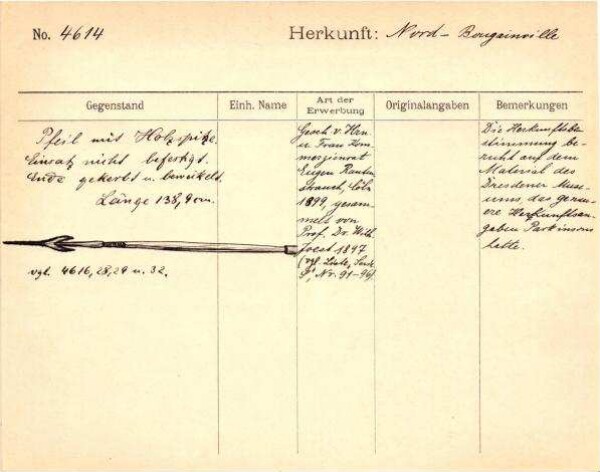 No. 4614
Herkunft: Nord-Bougainville
Gegenstand
Einh. Name
Art der Erwerbung
Originalangaben
Bemerkungen
Pfeil mit Holzspitze.
Einsatz nicht befestigt.
Ende gekerbt u. bewickelt.
Länge 138,9 cm.
vgl. 4616, 28, 29 u. 32.
Gesch. v. Hrn
u. Frau Kom-
merzienrat
Eugen Rauten-
strauch, Cöln
1899, gesam-
melt von
Prof. Dr. Wilh.
Joest 1897
(vgl. Liste,
Nr. 91-96)
Die Herkunftsbe-
stimmung be-
ruht auf dem
Material des
Dresdener Muse-
ums, das genau-
ere Herkunftsan-
gaben Parkinsons
hatte.